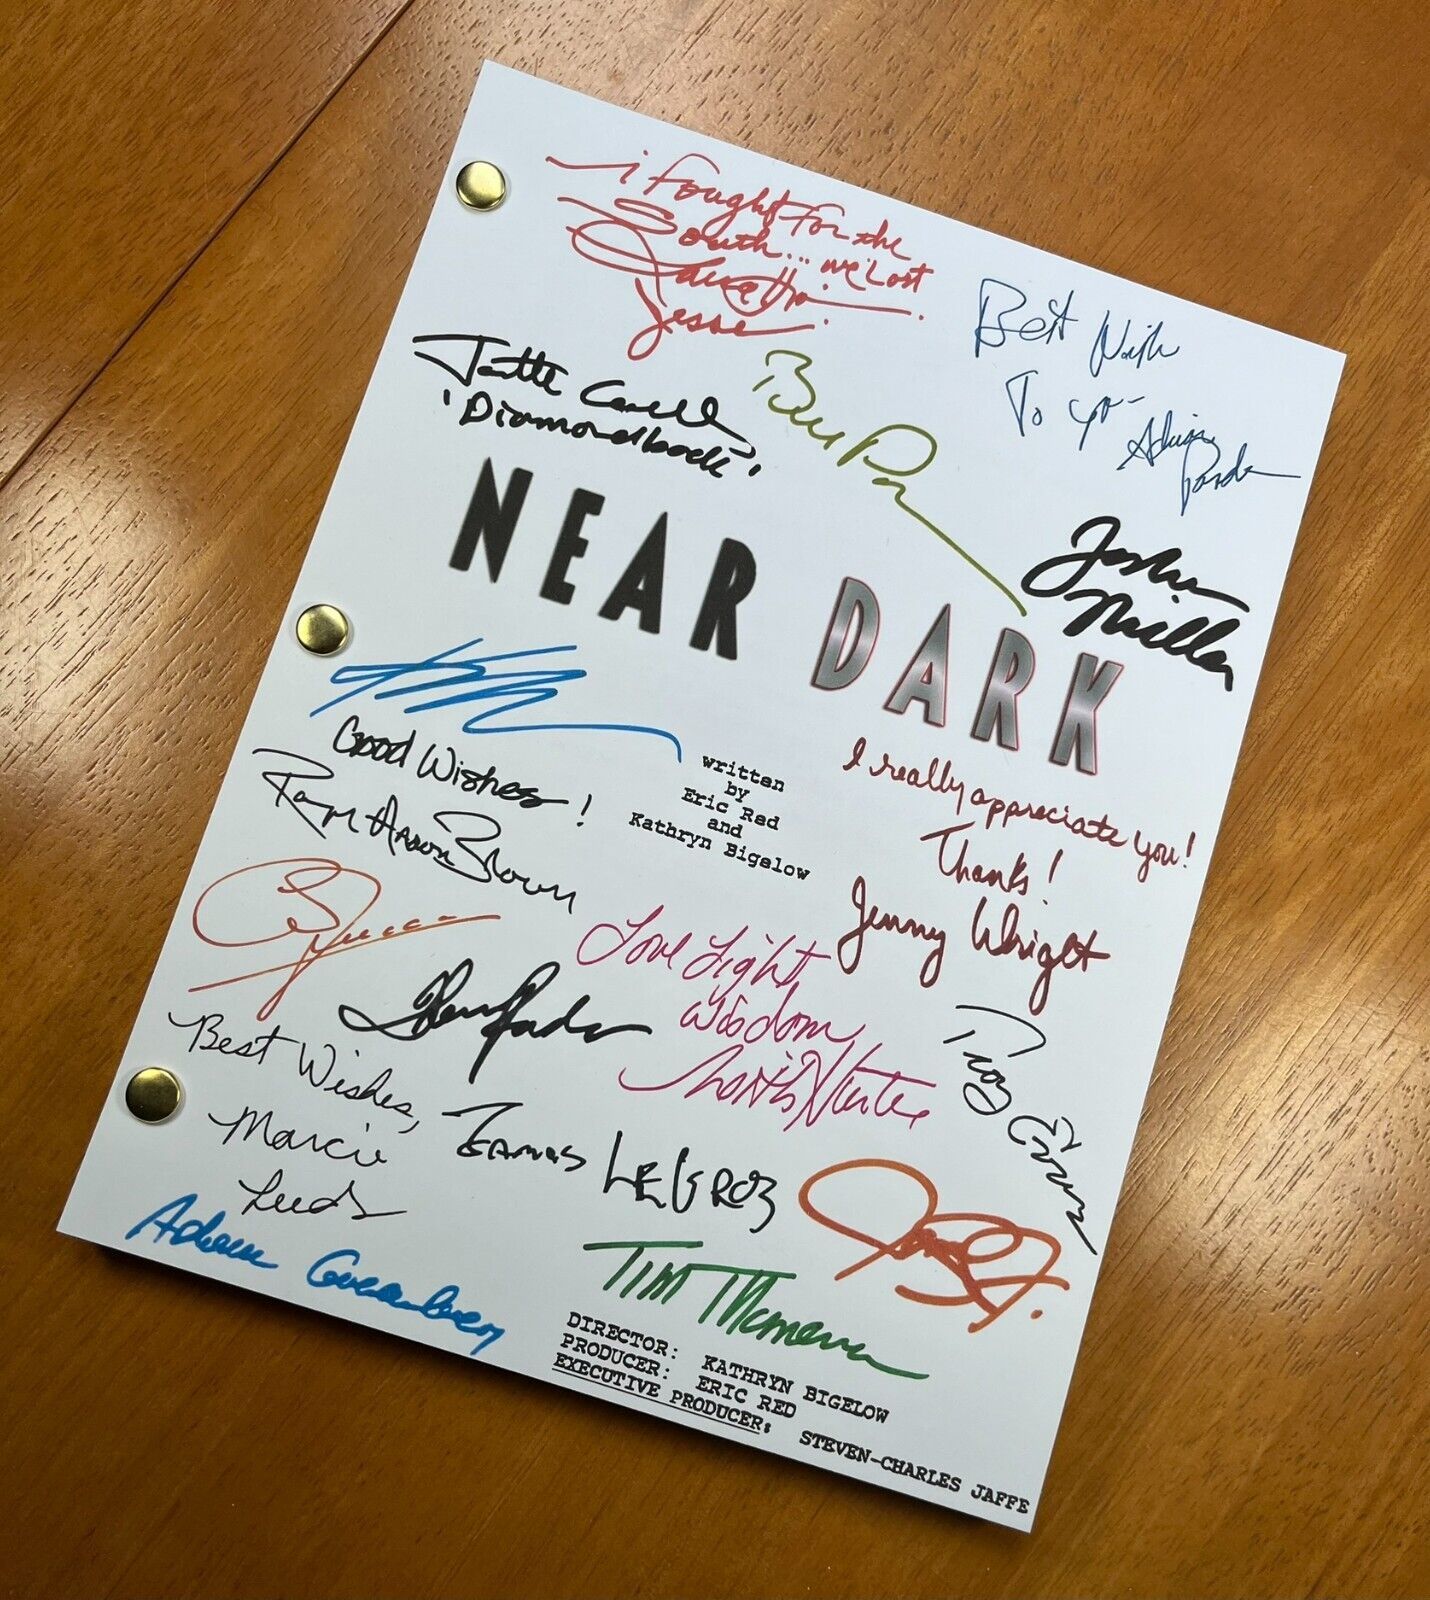 i fought for the
South... we lost
Jesse
Best Wish
To you-
Jenette
'Diamondback'
Bill
Joshua
Miller
NEAR DARK
Good Wishes!
Roger Aaron Brown
written
by
Eric Red
and
Kathryn Bigelow
I really appreciate you!
Thanks!
Jenny Wright
Love Light
Wisdom
Best Wishes,
Marcie
Leeds
James LeGros
Troy Evans
Adam Greenberg
Tim
DIRECTOR: KATHRYN BIGELOW
PRODUCER: ERIC RED
EXECUTIVE PRODUCER: STEVEN-CHARLES JAFFE